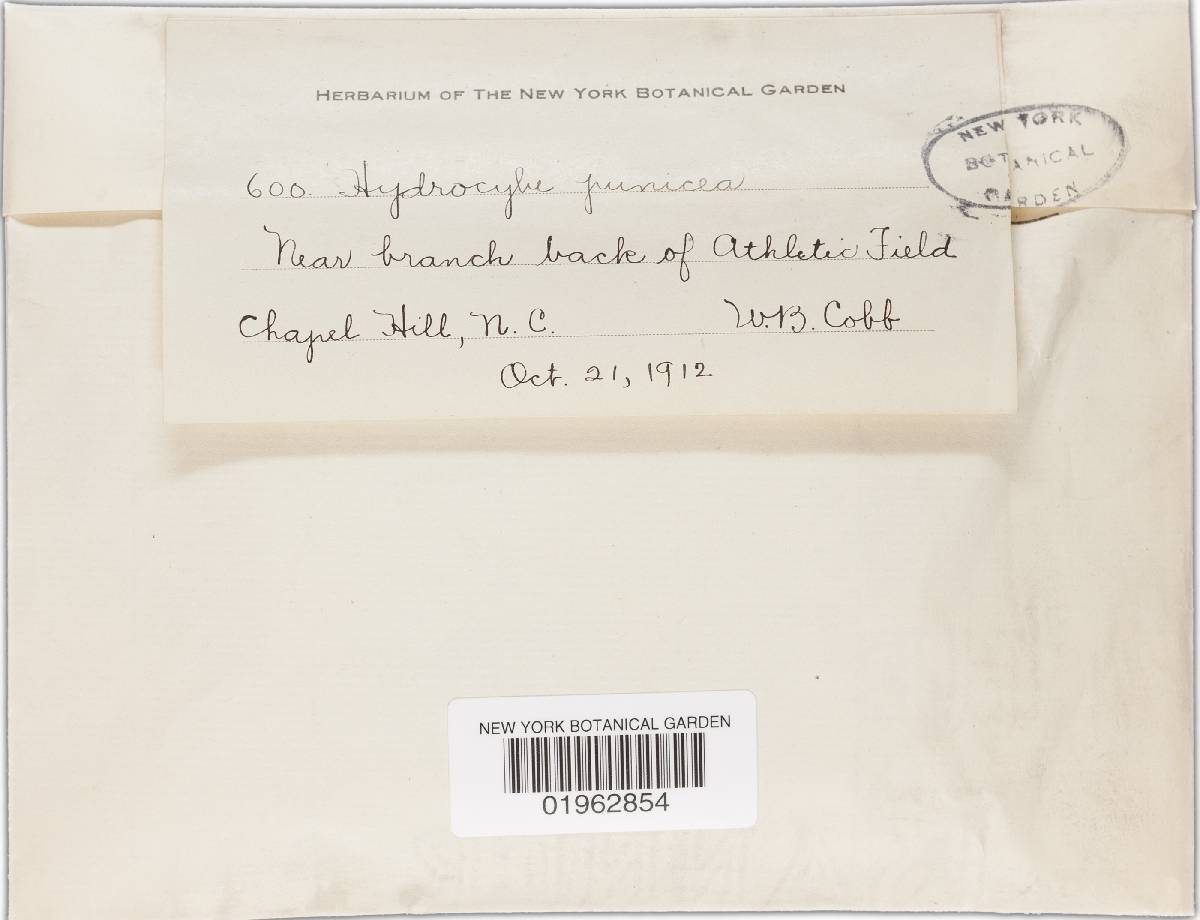 HERBARIUM OF THE NEW YORK BOTANICAL GARDEN
NEW YORK
BOTANICAL
GARDEN
600. Hydrocybe punicea
Near branch back of Athletic Field
Chapel Hill, N. C. W.B. Cobb
Oct. 21, 1912
NEW YORK BOTANICAL GARDEN
01962854